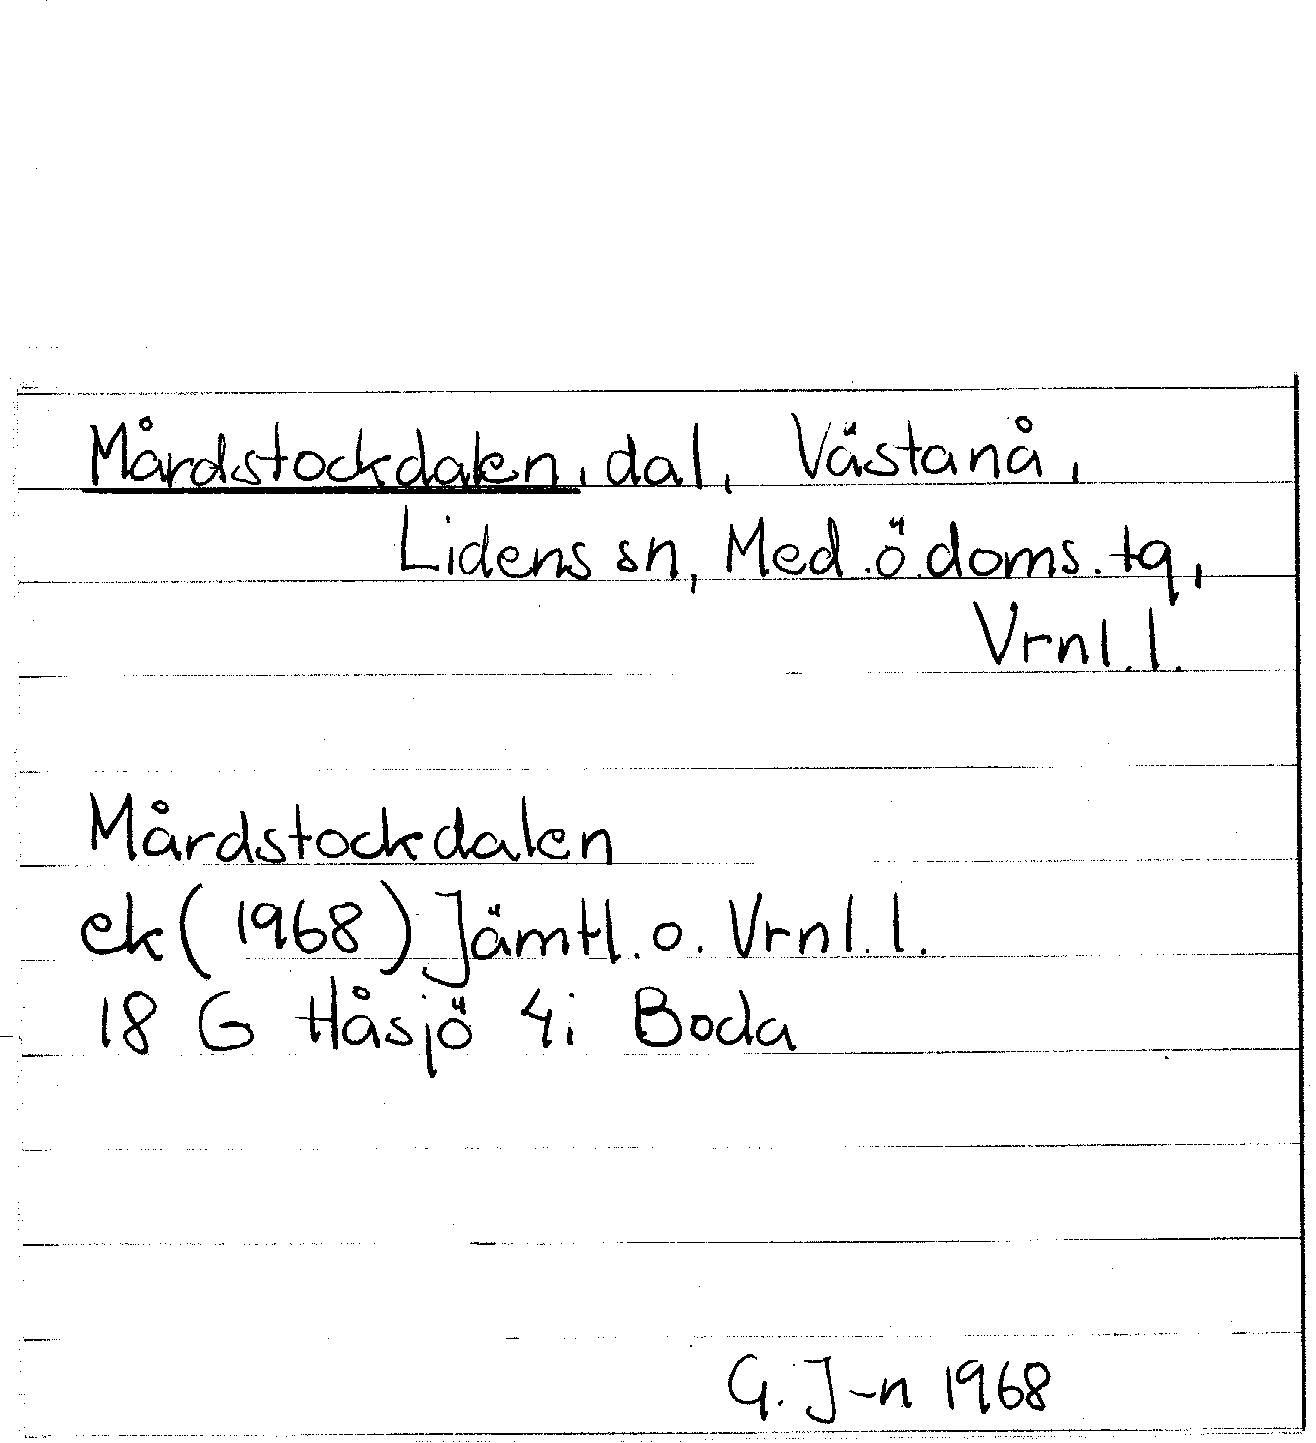 Mårdstockdalen, dal, Västanå,
Lidens sn, Med.ö.doms.tg,
Vrnl.l.
Mårdstockdalen
ek (1968) Jämtl. o. Vrnl.l.
18 G Håsjö 4i Boda
G. J-n 1968